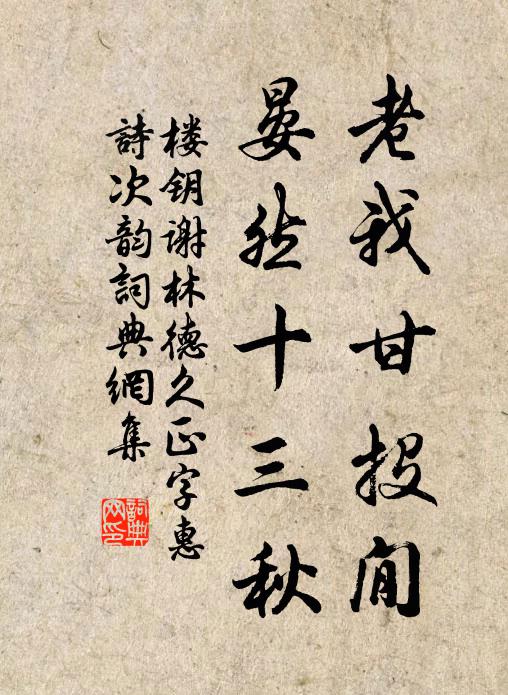 老我甘投閒
晏然十三秋
楼钥谢林德久正字惠
詩次韵詞典網集
詞典
网印